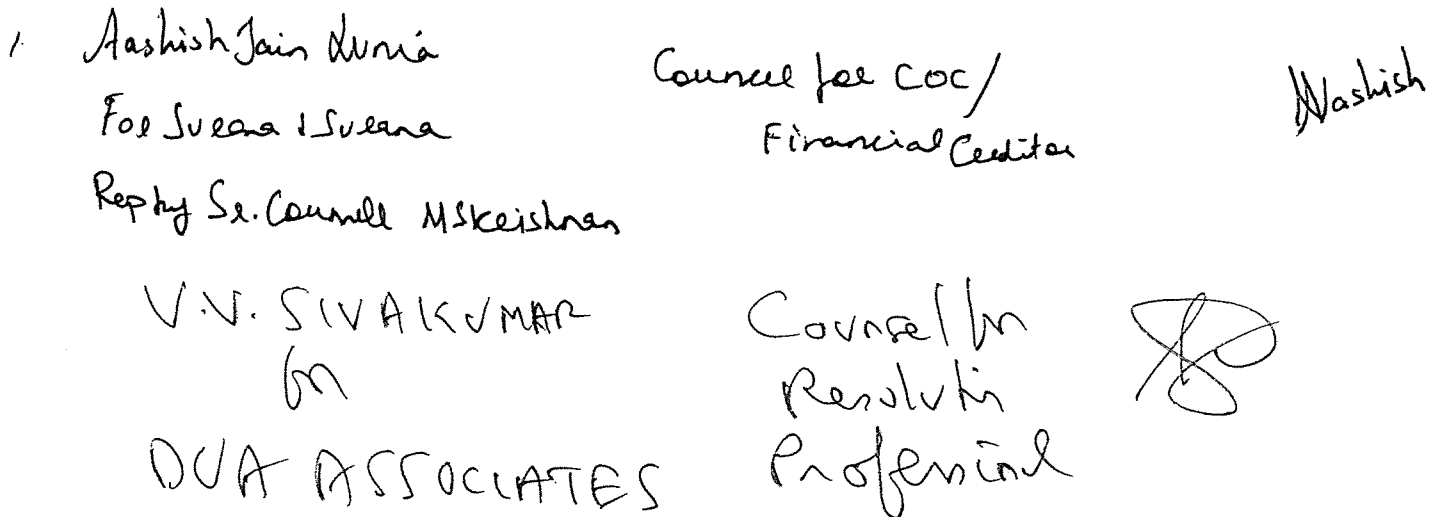 1. Aashish Jain Lunia
For Surana & Surana
Rep by Sr. Counsell MS Krishnan
Counsel for COC/
Financial Creditor
Aashish
V.V. SIVAKUMAR
for
DUA ASSOCIATES
Counsel for
Resolution
Professional